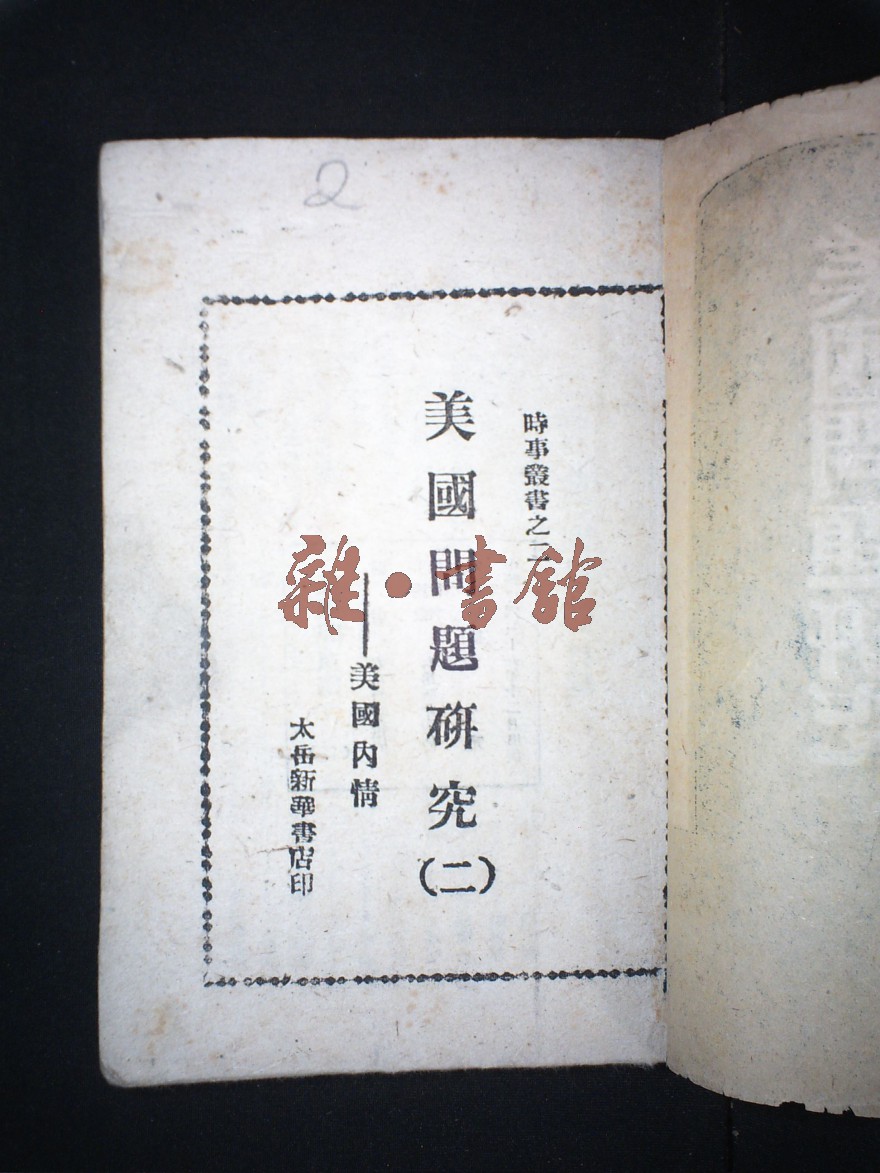 2
時事叢書之二
美國問題研究(二)
——美國內情
太岳新華書店印
雜·書館